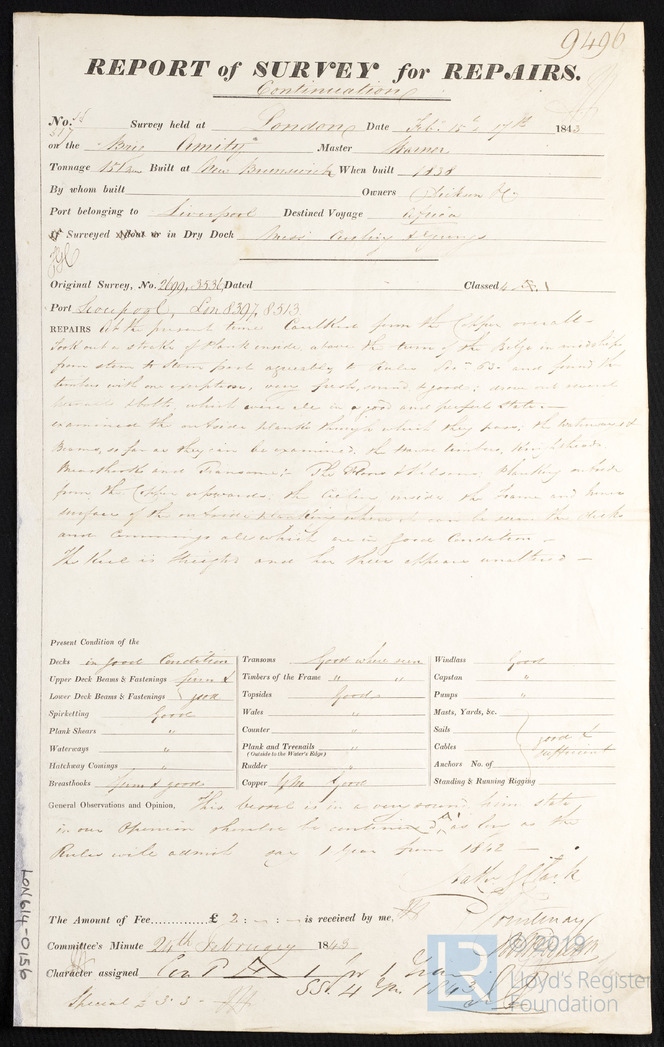 9496
REPORT of SURVEY for REPAIRS.
Continuation
No. Survey held at London Date Feb. 15 & 17th 1843
517
on the Brig Amity Master
Tonnage Built at New Brunswick When built 1838
By whom built Owners
Port belonging to Liverpool Destined Voyage Africa
If Surveyed Afloat or in Dry Dock Messrs Curling & Youngs
Original Survey, No. 2699, 3536 Dated Classed 4 A 1
Port Liverpool, Lon 8397, 8513
REPAIRS At the present time Caulked from the Copper overall -
Took out a strake of Plank inside, above the turn of the Bilge in midships
from stem to Stern post agreeably to Rules Sec. 53. and found the
timbers with one exception, very fresh, sound & good; drove out several
bolts, which were in a good and perfect state. -
examined the outside plank through which they pass; the Waterways &
Beams, so far as they can be examined; the Hawse timbers, Knightheads
Breasthooks and Transoms; The Floors & Planking outside
from the Copper upwards; the Ceiling inside the Frame and inner
surface of the outside planking where it can be seen the decks
and Commings all which are in good Condition -
The Keel is straight and her sheer appears unaltered -
Present Condition of the
Decks in good Condition Transoms Good where seen Windlass Good
Upper Deck Beams & Fastenings firm & Timbers of the Frame " " Capstan "
Lower Deck Beams & Fastenings good Topsides Good Pumps "
Spirketting Good Wales " Masts, Yards, &c.
Plank Shears " Counter " Sails good &
Waterways " Plank and Treenails " Cables sufficient
(Outside to the Water's Edge)
Hatchway Comings " Rudder " Anchors No. of
Breasthooks firm & good Copper Good Standing & Running Rigging
General Observations and Opinion, This vessel is in a very sound firm state
in our Opinion should be continued A1 as long as the
Rules will admit say 1 Year from 1842 -
Nathl G Clark
The Amount of Fee............£ 2 : - : - is received by me, Courtenay
Committee's Minute 24th February 1843
Character assigned Con A 1 for 1 Year
SS. 4 Yrs. 1843
Special £ 3 3 -
LON614-0156
© 2019
LR
Lloyd's Register
Foundation